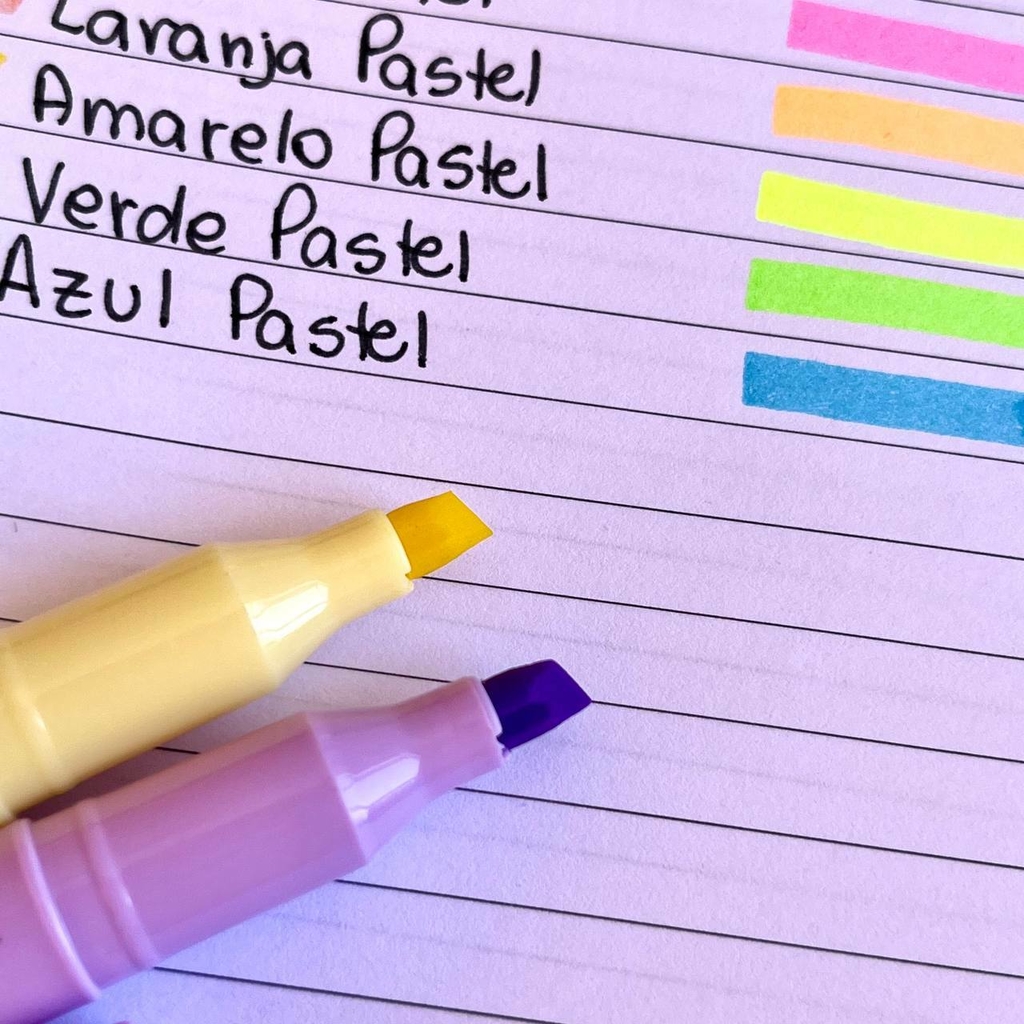 Laranja Pastel
Amarelo Pastel
Verde Pastel
Azul Pastel